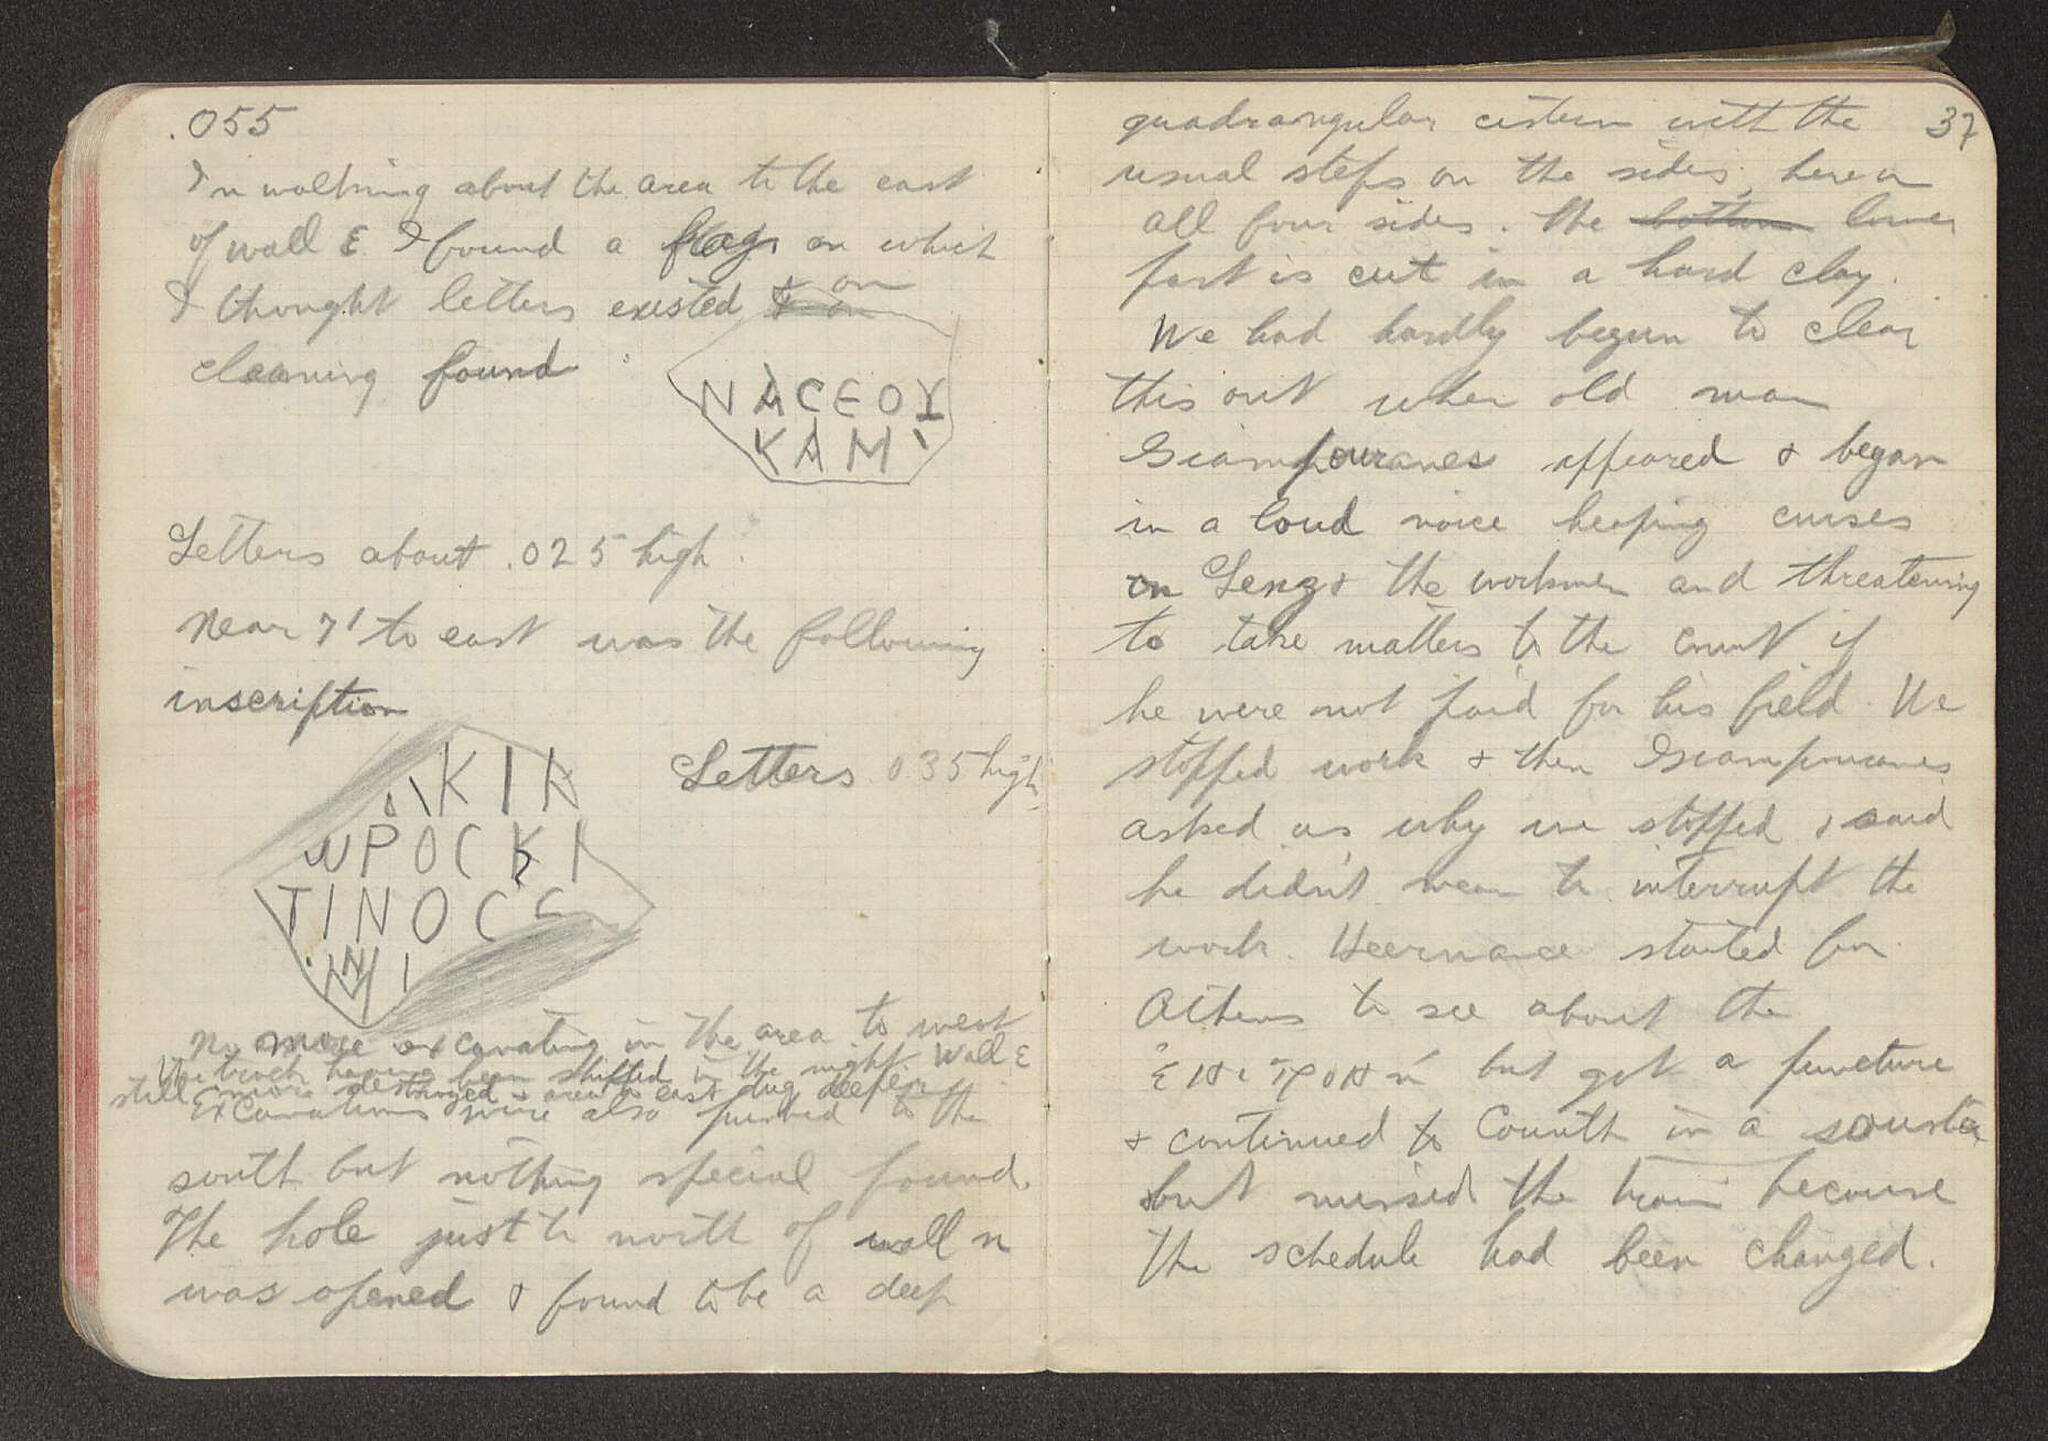 .055
In walking about the area to the east
of wall E I found a frag. on which
I thought letters existed & on
cleaning found
NACEOY
KAM
Letters about .025 high.
Near 7' to east was the following
inscription
KIK
Letters .035 high
ΡΟCΚΙ
TINOCC
No more excavating in the area to west
the trench having been shifted in the night. Wall E
still more destroyed & area to east dug deeper.
Excavations were also pushed to the
south but nothing special found.
The hole just to north of wall n
was opened & found to be a deep
37
quadrangular cistern with the
usual steps on the sides, here on
all four sides. The bottom lower
part is cut in a hard clay.
We had hardly begun to clear
this out when old man
Giampouranes appeared & began
in a loud voice heaping curses
on Leng & the workmen and threatening
to take matters to the court if
he were not paid for his field. We
stopped work & then Giampouranes
asked us why we stopped & said
he didn't mean to interrupt the
work. Heermance started for
Athens to see about the
but got a puncture
& continued to Corinth in a sousta
but missed the train because
the schedule had been changed.